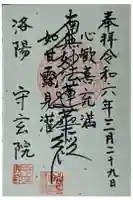 奉拝 令和六年十二月二十九日
心歓喜充満
南無妙法蓮華経
如甘露見灌
洛陽 守玄院